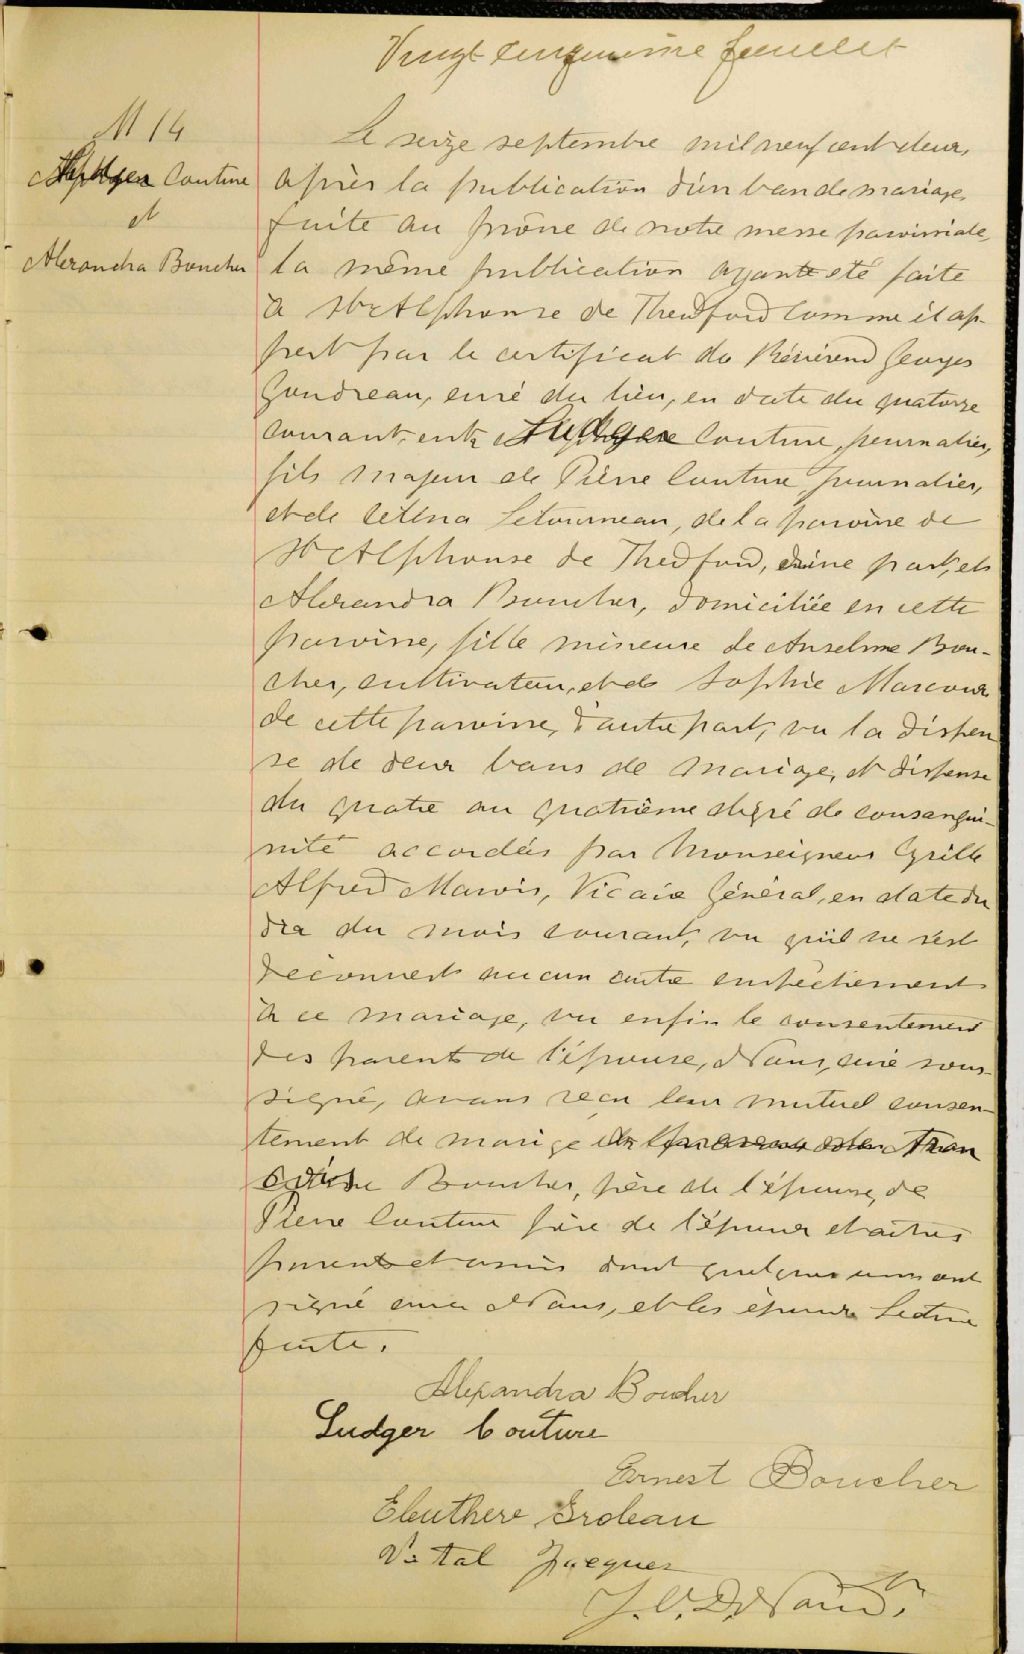 Vingt cinquième feuillet
M 14
Ludger Couture
et
Alexandra Boucher
Le seize septembre mil neuf cent deux,
après la publication d'un ban de mariage,
faite au prône de notre messe paroissiale,
la même publication ayant été faite
à St Alphonse de Thedford comme il ap-
pert par le certificat du Révérend Georges
Goudreau, curé du lieu, en date du quatorze
courant, entre Ludger Couture, journalier,
fils majeur de Pierre Couture journalier,
et de Célina Letourneau, de la paroisse de
St Alphonse de Thedford, d'une part, et
Alexandra Boucher, domiciliée en cette
paroisse, fille mineure de Anselme Bou-
cher, cultivateur, et de Sophie Marcoux
de cette paroisse, d'autre part, vu la dispen
se de deux bans de mariage, et dispense
du quatre au quatrième degré de consangui-
nité accordés par Monseigneur Cyrille
Alfred Marois, Vicaire Général, en date du
dix du mois courant, vu qu'il ne s'est
découvert aucun autre empêchement
à ce mariage, vu enfin le consentement
des parents de l'épouse, Nous, curé sous-
signé, avons reçu leur mutuel consen-
tement de mariage
Boucher, père de l'épouse, de
Pierre Couture père de l'époux et autres
parents et amis dont quelques uns ont
signé avec Nous, et les époux. Lecture
faite.
Alexandra Boucher
Ludger Couture
Ernest Boucher
Eleuthere Groleau
Vital Jacques